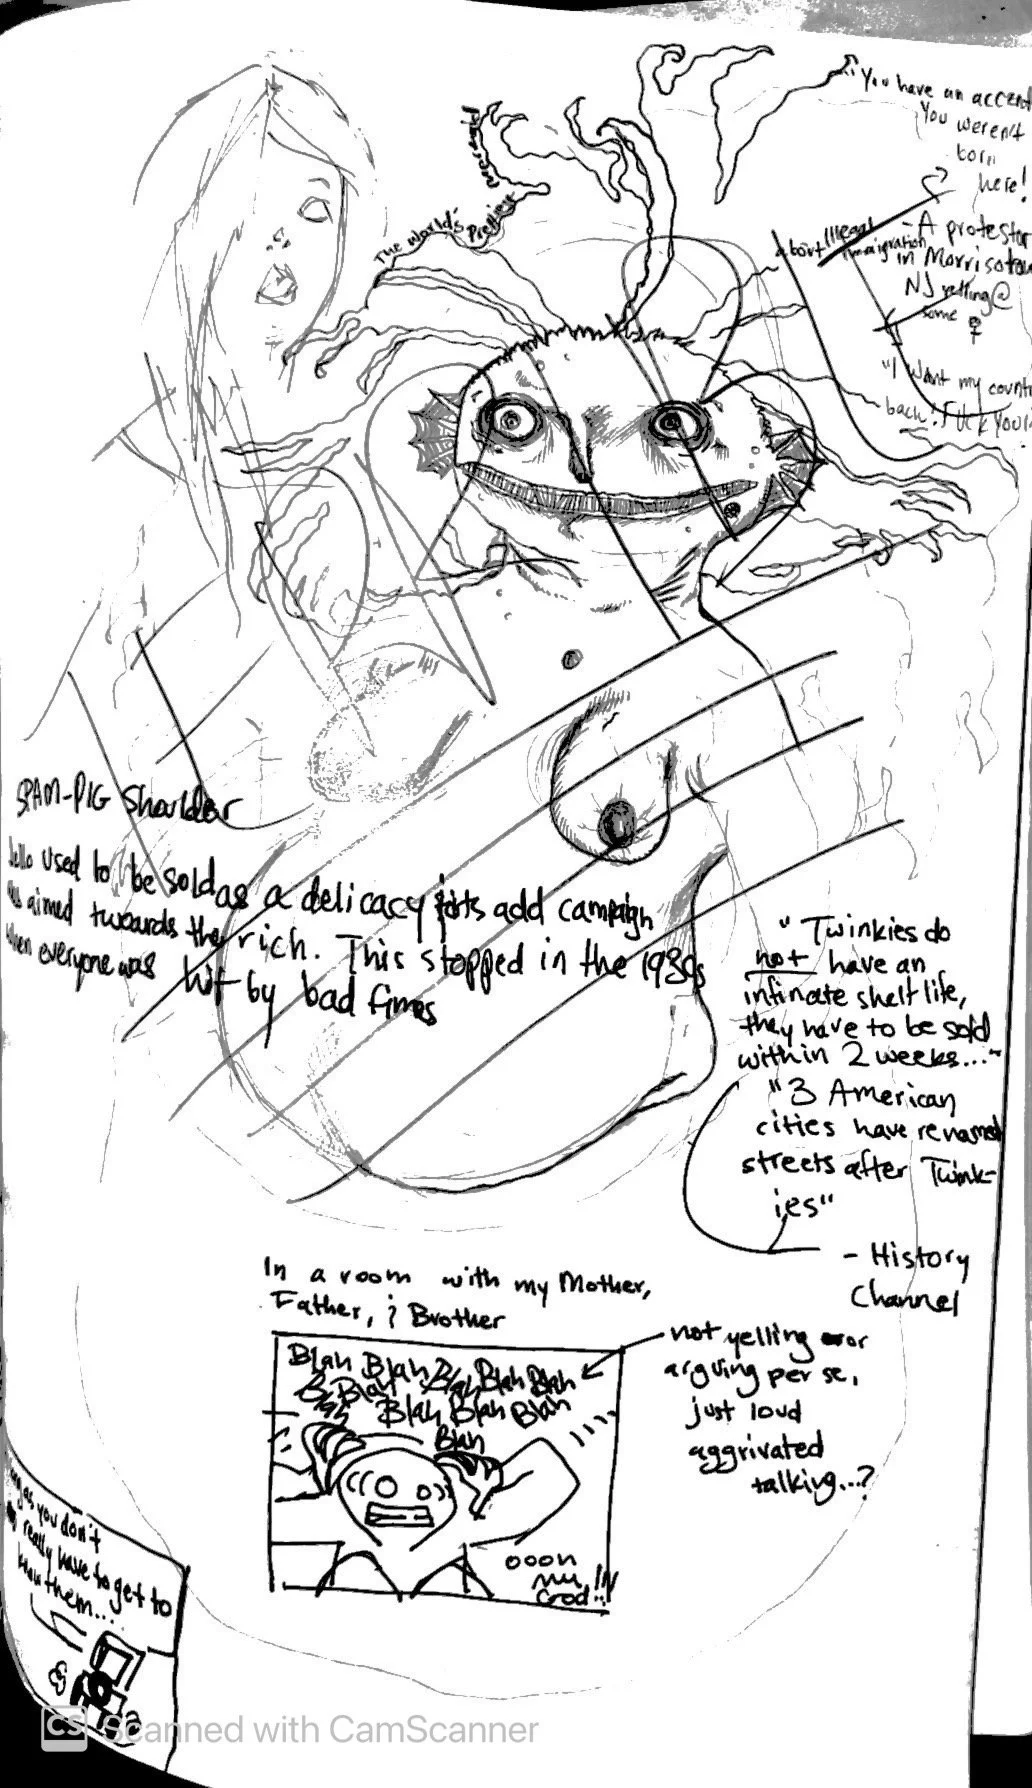 The World's
Prettiest
Mermaid
"You have an accent
You weren't
born
here!
- A protestor
in Morristown
NJ yelling @
some ♀
about Illegal
Immaigration
"I want my countr
back! Fuck You!
SPAM-PIG Shoulder
Jello used to be sold as a delicacy & its add campaign
was aimed twoards the rich. This stopped in the 1930s
when everyone was hit by bad times
"Twinkies do
not have an
infinate shelf life,
they have to be sold
within 2 weeks..."
"3 American
cities have renamed
streets after Twink-
ies"
- History
Channel
In a room with my Mother,
Father, & Brother
Blah Blah Blah Blah Blah
Blah Blah
Blah Blah Blah Blah
Blah
not yelling or
arguing per se,
just loud
aggrivated
talking...?
oooh
my
God!!!
as you don't
really have to get to
know them...
CS Scanned with CamScanner